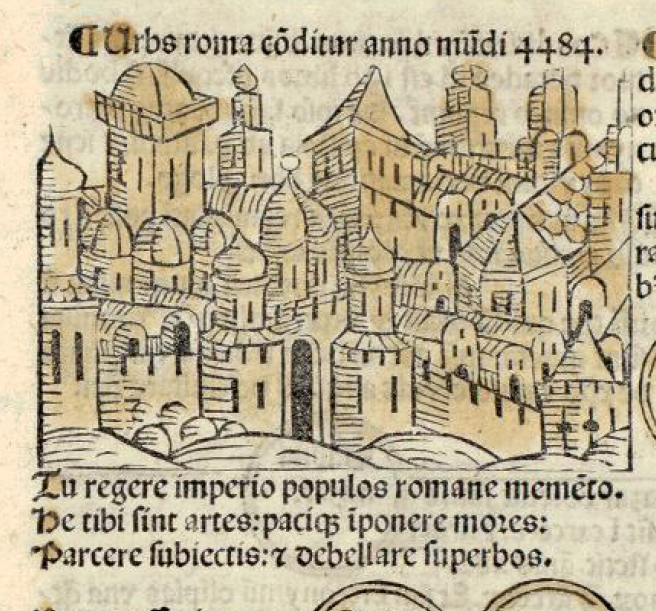 ¶ Urbs roma cōditur anno mūdi 4484.
Tu regere imperio populos romane memēto.
He tibi sint artes: paciqꝫ īponere mores:
Parcere subiectis: ⁊ debellare superbos.